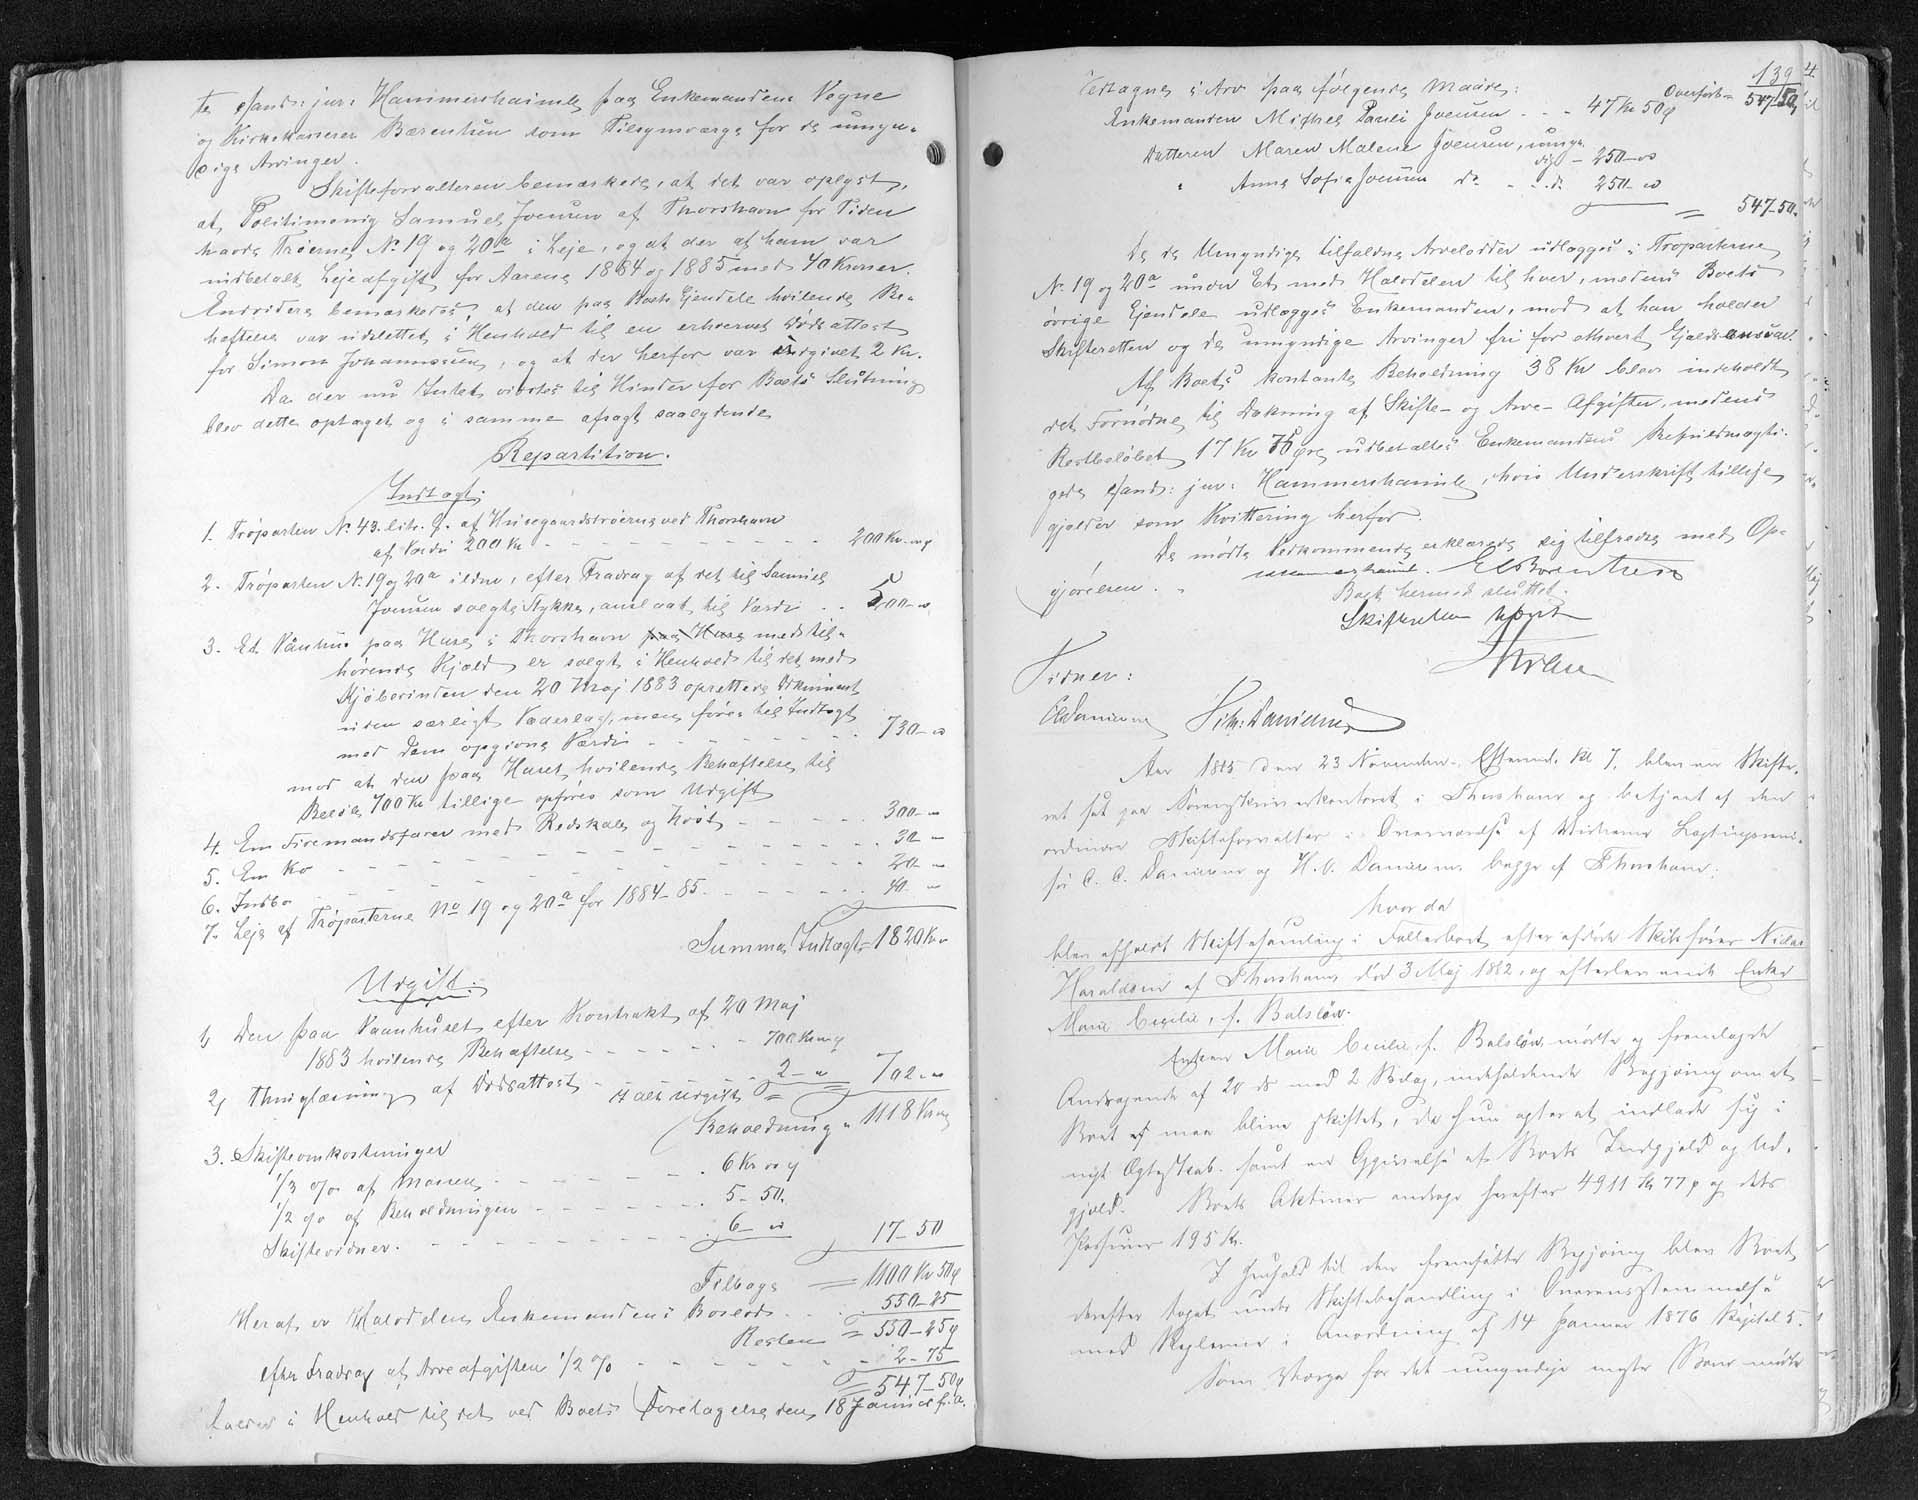 te cand: jur: Hammershaimb paa Enkemandens Vegne
og Kirkekasserer Bærentsen som Tilsynsværge for de umyn-
dige Arvinger.
Skifteforvalteren bemærkede, at det var oplyst,
at Politimænig Samuel Joensen af Thorshavn for Tiden
havde Trøerne No 19 og 20a i Leje, og at der af ham var
indbetalt Lejeafgift for Aarene 1884 og 1885 med 40 Kroner.
Endvidere bemærkedes, at den paa Boets Ejendele hvilende Be-
hæftelse var udslettet i Henhold til en erhvervet Dødsattest
for Simon Johannessen, og at der herfor var udgivet 2 Kr.
Da der nu Intet vidstes til Hinder for Boets Slutning
blev dette optaget og i samme afsagt saalydende
Repartition.
Indtægt:
1. Trøparten No 43. litr. q. af Husegaardstrøerne ved Thorshavn
af Værdi 200 Kr - - - 200 Kr "
2. Trøparten No. 19 og 20a ildne, efter Fradrag af det til Samuel
Joensen solgte Stykke, anslaaet til Værdi . . 500 - "
3. Et Vaanhus paa Huse i Thorshavn paa Huse med til-
hørende Kjæld er solgt i Henhold til det med
Kjøberinden den 20 Maj 1883 oprettede Dokument
uden særligt Vederlag, men føres til Indtægt
med dens opgivne Værdi - - - 730 - "
mod at den paa Huset hvilende Behæftelse til
Beløb 700 Kr tillige opføres som Udgift
4. En Firemandsfarer med Redskab og Kost - - - 300 - "
5. En Ko - - - 30 - "
6. Indbo - - - 20 - "
7. Leje af Trøparterne No 19 og 20a for 1884-85. - - - 40 - "
Summa Indtægt = 1820 Kr "
Udgift:
1, Den paa Vaanhuset efter Kontrakt af 20 Maj
1883 hvilende Behæftelse - - - 700 Kr "
2, Thinglæsning af Dødsattest - - - 2 - "
I alt Udgift = 702 - "
Beholdning = 1118 Kr "
3. Skifteomkostninger
1/3 % af Massen - - - 6 Kr " ø
1/2 % af Beholdningen - - - 5 - 50.
Skiftevidner. - - - 6 - "
17 - 50
Tilbage = 1100 Kr 50 ø
Heraf er Halvdelen Enkemandens Boslod . . . 550 - 25
Resten = 550 - 25 ø
efter Fradrag af Arveafgiften 1/2 % - - - 2 - 75
= 547 - 50 ø
i Henhold til det ved Boets Foretagelse den 18 Januar f. A.
139
Overført = 547 50
i Arv paa følgende Maade:
Enkemanden Michel Pauli Joensen - - - 47 Kr 50 ø
Datteren Maren Malene Joensen, umyn-
dig - 250 - "
" Anna Sofie Joensen do - - do 250 - "
= 547 - 50.
De de Umyndige tilfaldne Arvelodder udlægges i Trøparterne
No. 19 og 20a under Et med Halvdelen til hver, medens Boets
øvrige Ejendele udlægges Enkemanden, mod at han holder
Skifteretten og de umyndige Arvinger fri for ethvert Gjældsansvar.
Af Boets kontante Beholdning 38 Kr blev indeholdt
det Fornødne til Dækning af Skifte- og Arve-Afgifter, medens
Restbeløbet 17 Kr 75 Øre udbetaltes Enkemandens Befuldmægti-
gede cand: jur: Hammershaimb, hvis Underskrift tillige
gjælder som Kvittering herfor.
De mødte Vedkommende erklærede sig tilfredse med Op-
gjørelsen.
Hammershaimb. E C Bærentsen
Boet hermed sluttet.
Skifteretten hævet
Vidner:
C C Danielsen H: Danielsen
Aar 1885 den 23 November, Eftermd. Kl 7, blev en Skifte-
ret sat paa Sorenskriverkontoret i Thorshavn og betjent af den
ordinære Skifteforvalter i Overværelse af Vidnerne Lagtingsmænd
C. C. Danielsen og H. O. Danielsen begge af Thorshavn;
hvor da
blev afholdt Skiftesamling i Fællesboet efter afdøde Skibsfører Niclas
Haraldsen af Thorshavn død 3 Maj 1882, og efterlevende Enke
Marie Cecilie, f. Balsløv.
Enken Marie Cecilie, f. Balsløv mødte og fremlagde
Andragende af 20 ds med 2 Bilag, indeholdende Begjæring om at
Boet maa blive skiftet, da hun agter at indlade sig i
nyt Ægteskab, samt en Opgivelse af Boets Indgjæld og Ud-
gjæld. Boets Aktiver andrage herefter 4911 Kr 77 ø og dets
Passiver 195 Kr.
I Henhold til den fremsatte Begjæring blev Boet
derefter taget under Skiftebehandling i Overensstemmelse
med Reglerne i Anordning af 14 Januar 1876 Kapitel 5.
Som Værge for det umyndige yngste Barn mødte